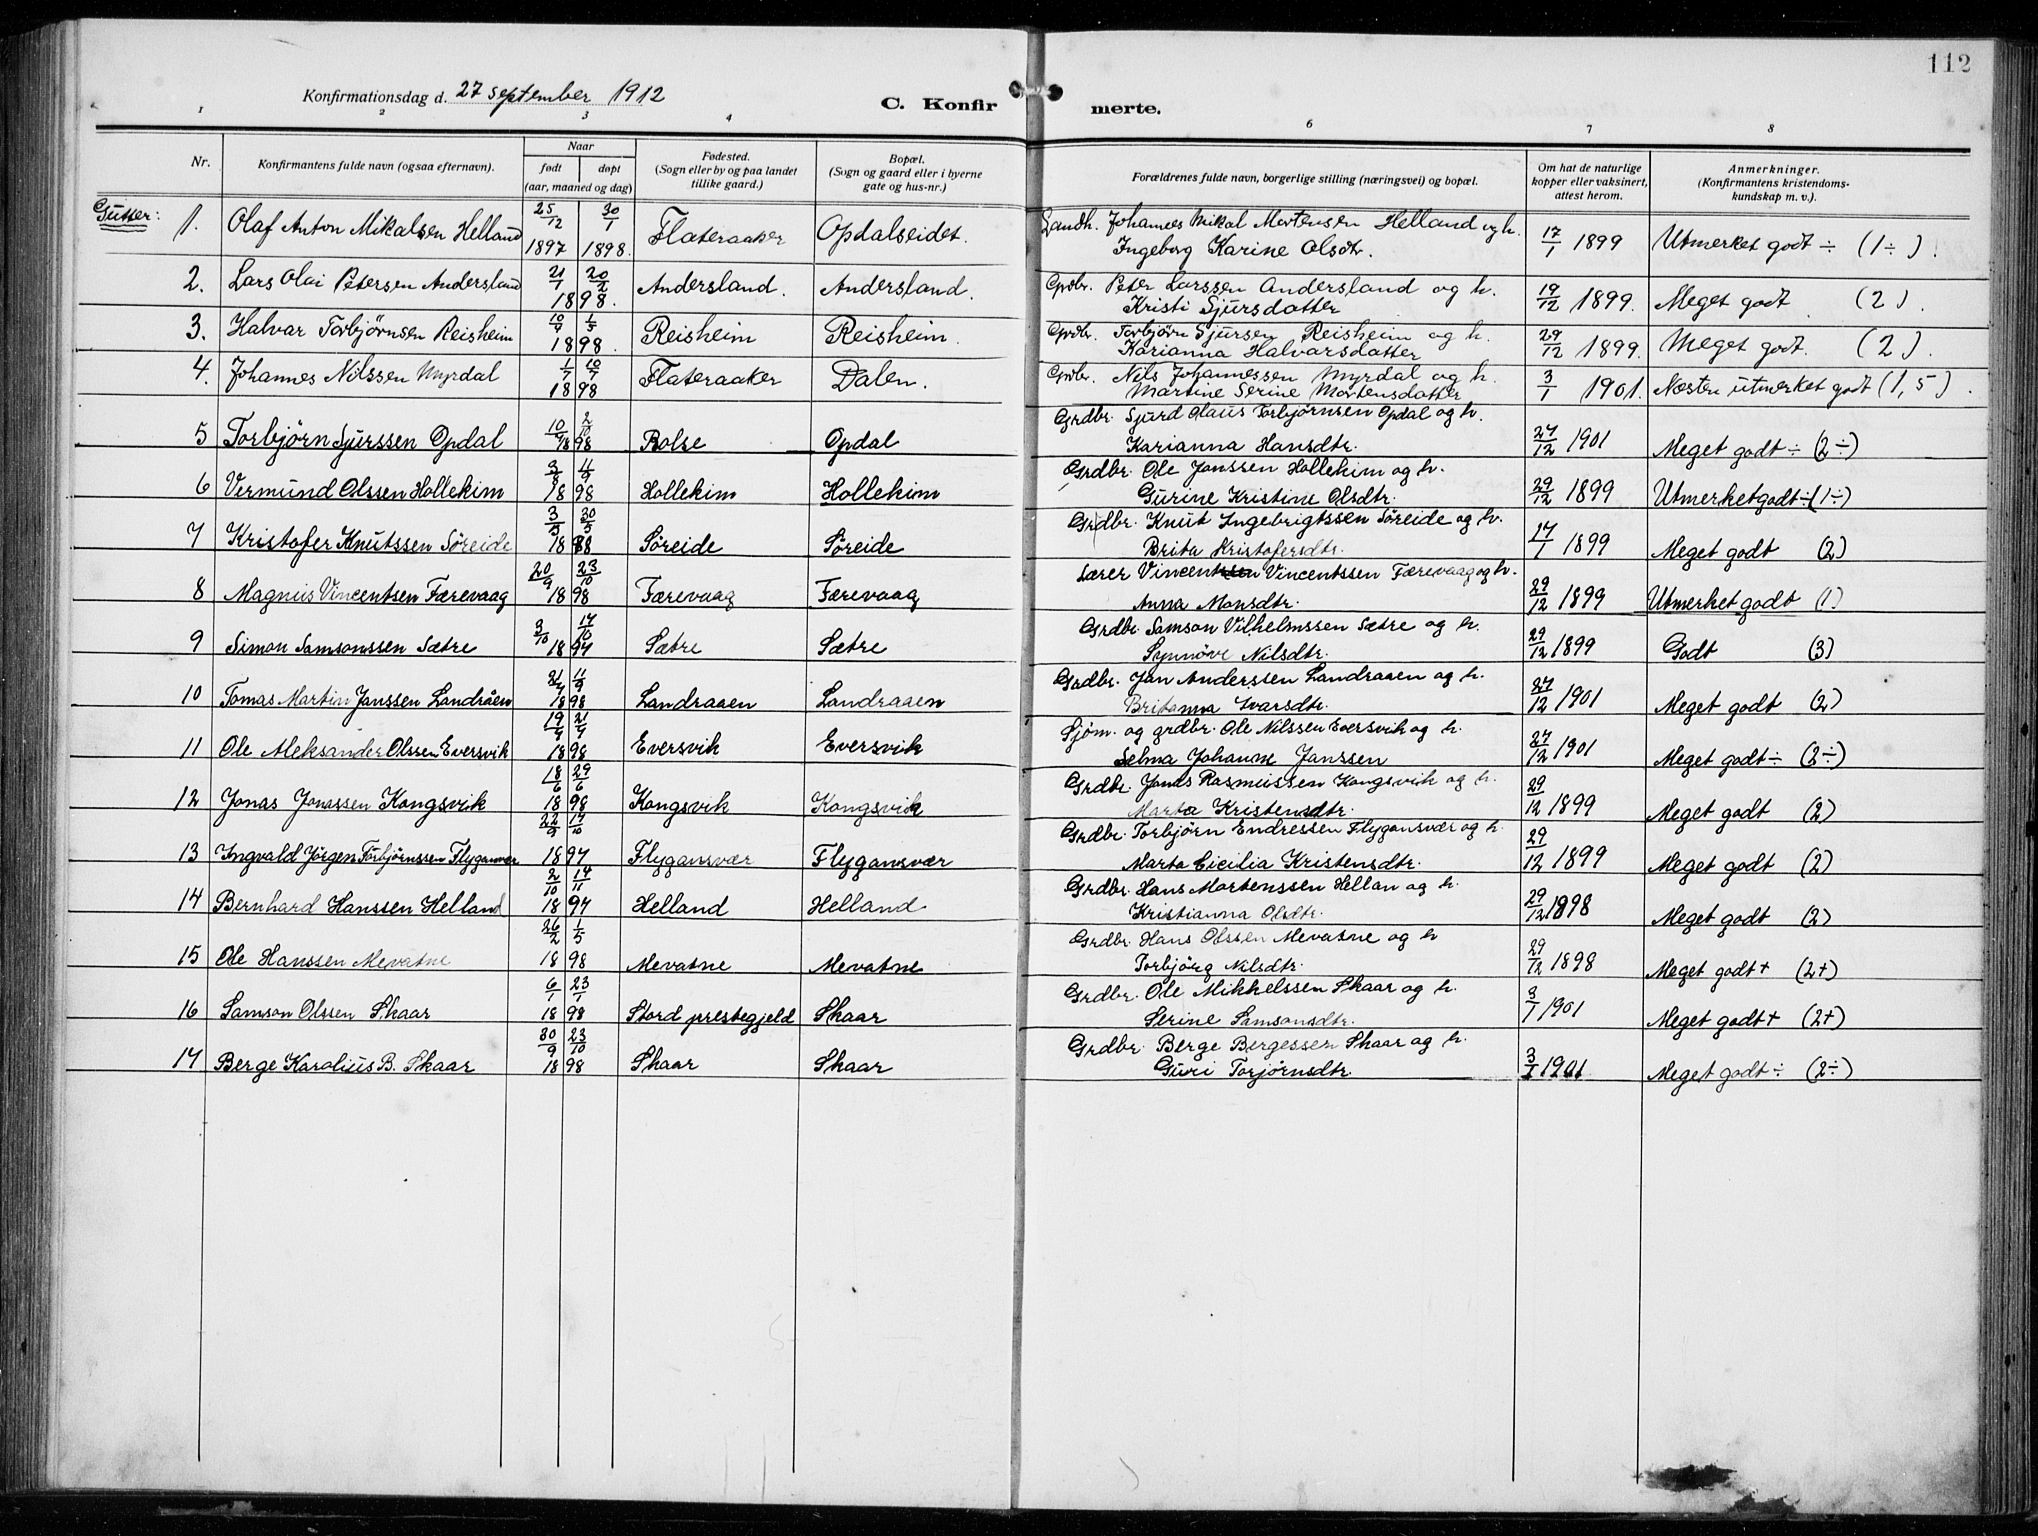 112
Konfirmationsdag d. 27 september 1912
C. Konfir merte.
1 2 3 4 6 7 8
Nr. Konfirmantens fulde navn (ogsaa efternavn). Naar født døpt (aar, maaned og dag) Fødested. (Sogn eller by og paa landet tillike gaard.) Bopæl. (Sogn og gaard eller i byerne gate og hus-nr.) Forældrenes fulde navn, borgerlige stilling (næringsvei) og bopæl. Om hat de naturlige kopper eller vaksinert, attest herom. Anmerkninger. (Konfirmantens kristendoms-kundskap m. v.).
Gutter:
1. Olaf Anton Mikalsen Helland 25/12 1897 30/1 1898. Flateraaker Opdalseidet. Landh. Johannes Mikal Mortensen Helland og h.
Ingeborg Karine Olsdtr. 17/1 1899 Utmerket godt ÷ (1÷)
2. Lars Olai Petersen Andersland 21/1 20/2 1898. Andersland. Andersland. Grdbr. Peter Larssen Andersland og h.
Kristi Sjursdatter 19/12 1899. Meget godt (2).
3. Halvar Torbjørnsen Reisheim 10/4 1/5 1898. Reisheim Reisheim. Grdbr. Torbjørn Sjursen Reisheim og h.
Karianna Halvarsdatter 29/12 1899. Meget godt. (2).
4. Johannes Nilssen Myrdal 1/7 10/7 1898 Flateraaker Dalen. Grdbr. Nils Johannessen Myrdal og h.
Martine Serine Mortensdatter 3/1 1901. Næsten utmerket godt (1,5).
5 Torbjörn Sjurssen Opdal 10/9 2/10 1898 Bolse Opdal Grdbr. Sjurd Olaus Torbjørnsen Opdal og h.
Karianna Hansdtr. 27/12 1901 Meget godt ÷ (2÷)
6 Vermund Olssen Hollekim 3/8 4/9 1898 Hollekim Hollekim Grdbr. Ole Janssen Hollekim og h.
Gurine Kristine Olsdtr. 29/12 1899 Utmerket godt ÷ (1÷)
7 Kristofer Knutssen Søreide 3/5 30/5 1898 Söreide Söreide Grdbr. Knut Ingebrigtssen Söreide og h.
Brita Kristofersdtr. 17/1 1899 Meget godt (2)
8 Magnus Vincentsen Færevaag 20/9 23/10 1898 Færevaag Færevaag Lærer Vincentssen Vincentssen Færevaag og h.
Anna Monsdtr. 29/12 1899 Utmerket godt (1)
9 Simon Samsonssen Sætre 3/10 17/10 1897 Sætre Sætre Grdbr. Samson Vilhelmssen Sætre og h.
Synnöve Nilsdtr. 29/12 1899 Godt (3)
10 Tomas Martin Janssen Landråen 1898 Landraaen Landraaen Grdbr. Jan Anderssen Landraaen og h.
Britanna Ivarsdtr. 27/12 1901 Meget godt (2)
11 Ole Aleksander Olssen Eversvik 1898 Eversvik Eversvik Sjöm. og grdbr. Ole Nilssen Eversvik og h.
Selma Johanne Janssen 27/12 1901 Meget godt ÷ (2÷)
12 Jonas Jonassen Kongsvik 18/6 29/6 1898 Kongsvik Kongsvik Grdbr. Jonas Rasmussen Kongsvik og h.
Marta Kristensdtr. 29/12 1899 Meget godt (2)
13 Ingvald Jörgen Torbjörnssen Flygansvær 22/9 17/10 1897 Flygansvær Flygansvær Grdbr. Torbjörn Endressen Flygansvær og h.
Marta Cicilia Kristensdtr. 29/12 1899 Meget godt (2)
14 Bernhard Hanssen Helland 2/10 14/11 1897 Helland Helland Grdbr. Hans Mortenssen Hellan og h.
Kristianna Olsdtr. 29/12 1898 Meget godt (2)
15 Ole Hanssen Mevatne 26/2 1/5 1898 Mevatne Mevatne Grdbr. Hans Olssen Mevatne og h
Torbjörg Nilsdtr. 29/12 1898 Meget godt + (2+)
16 Samson Olssen Skaar 6/1 23/1 1898 Stord prestegjeld Skaar Grdbr. Ole Mikkelssen Skaar og h.
Serine Samsonsdtr. 3/1 1901 Meget godt + (2+)
17 Berge Karolius B. Skaar 30/9 23/10 1898 Skaar Skaar Grdbr. Berge Bergessen Skaar og h.
Guri Torjörnsdtr. 3/1 1901 Meget godt ÷ (2÷)